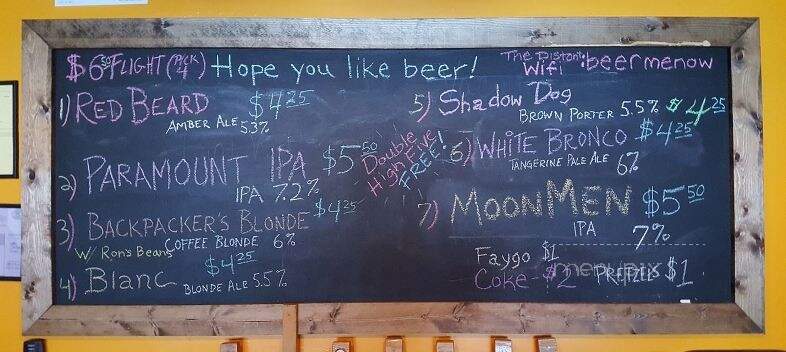 $6.50 FLIGHT (PICK 4) Hope you like beer!
The Distant
Wifi :beermenow
1) RED BEARD $4.25
AMBER ALE 5.3%
2) PARAMOUNT IPA $5.50
IPA 7.2%
3) BACKPACKER'S BLONDE $4.25
W/ Ron's Beans COFFEE BLONDE 6%
4) Blanc $4.25
BLONDE ALE 5.5%
Double
High Five
FREE!
5) Shadow Dog $4.25
BROWN PORTER 5.5%
6) WHITE BRONCO $4.25
TANGERINE PALE ALE 6%
7) MOONMEN $5.50
IPA 7%
Faygo $1
Coke - $2 PRETZEL $1
menupix